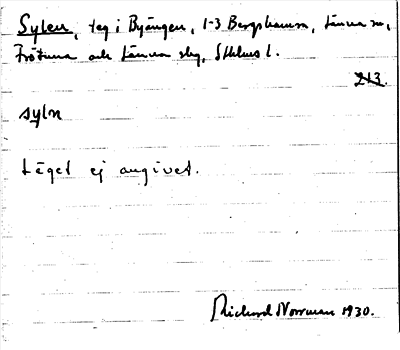 Sylen, teg i Byängen, 1-3 Bergshamra, Länna sn,
Frötuna och Länna skg, Sthlms l.
213.
syln
Läget ej angivet.
Richard Norrman 1930.